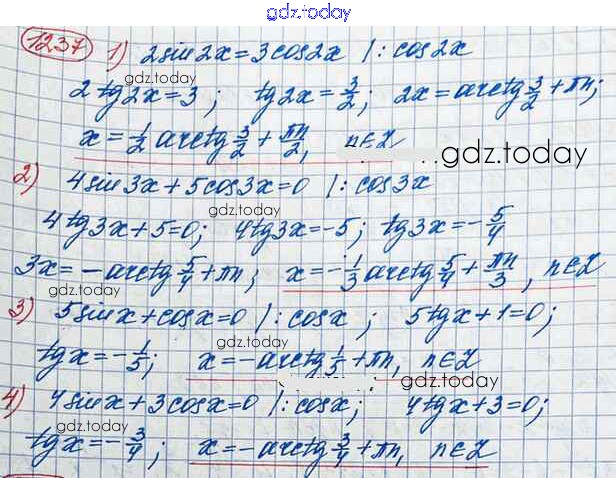 gdz.today
1237 1) 2sin2x=3cos2x |:cos2x
gdz.today
2tg2x=3; tg2x=3/2; 2x=arctg3/2+πn;
x=1/2 arctg3/2+πn/2, n∈Z
gdz.today
2) 4sin3x+5cos3x=0 |:cos3x
gdz.today
4tg3x+5=0; 4tg3x=-5; tg3x=-5/4
3x=-arctg5/4+πn; x=-1/3arctg5/4+πn/3, n∈Z
gdz.today
3) 5sinx+cosx=0 |:cosx; 5tgx+1=0;
tgx=-1/5; x=-arctg1/5+πn, n∈Z
gdz.today
4) 4sinx+3cosx=0 |:cosx; 4tgx+3=0;
gdz.today
tgx=-3/4; x=-arctg3/4+πn, n∈Z